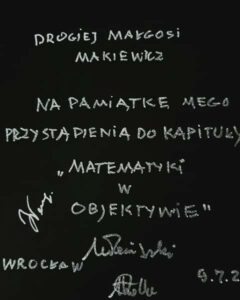 DROGIEJ MAŁGOSI
MAKIEWICZ
NA PAMIĄTKĘ MEGO
PRZYSTĄPIENIA DO KAPITUŁY
„MATEMATYKI
W
OBJEKTYWIE"
WROCŁAW
9.7.2